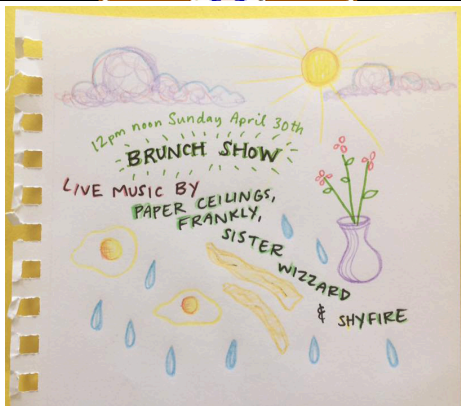 12pm noon Sunday April 30th
BRUNCH SHOW
LIVE MUSIC BY
PAPER CEILINGS,
FRANKLY,
SISTER
WIZZARD
& SHYFIRE